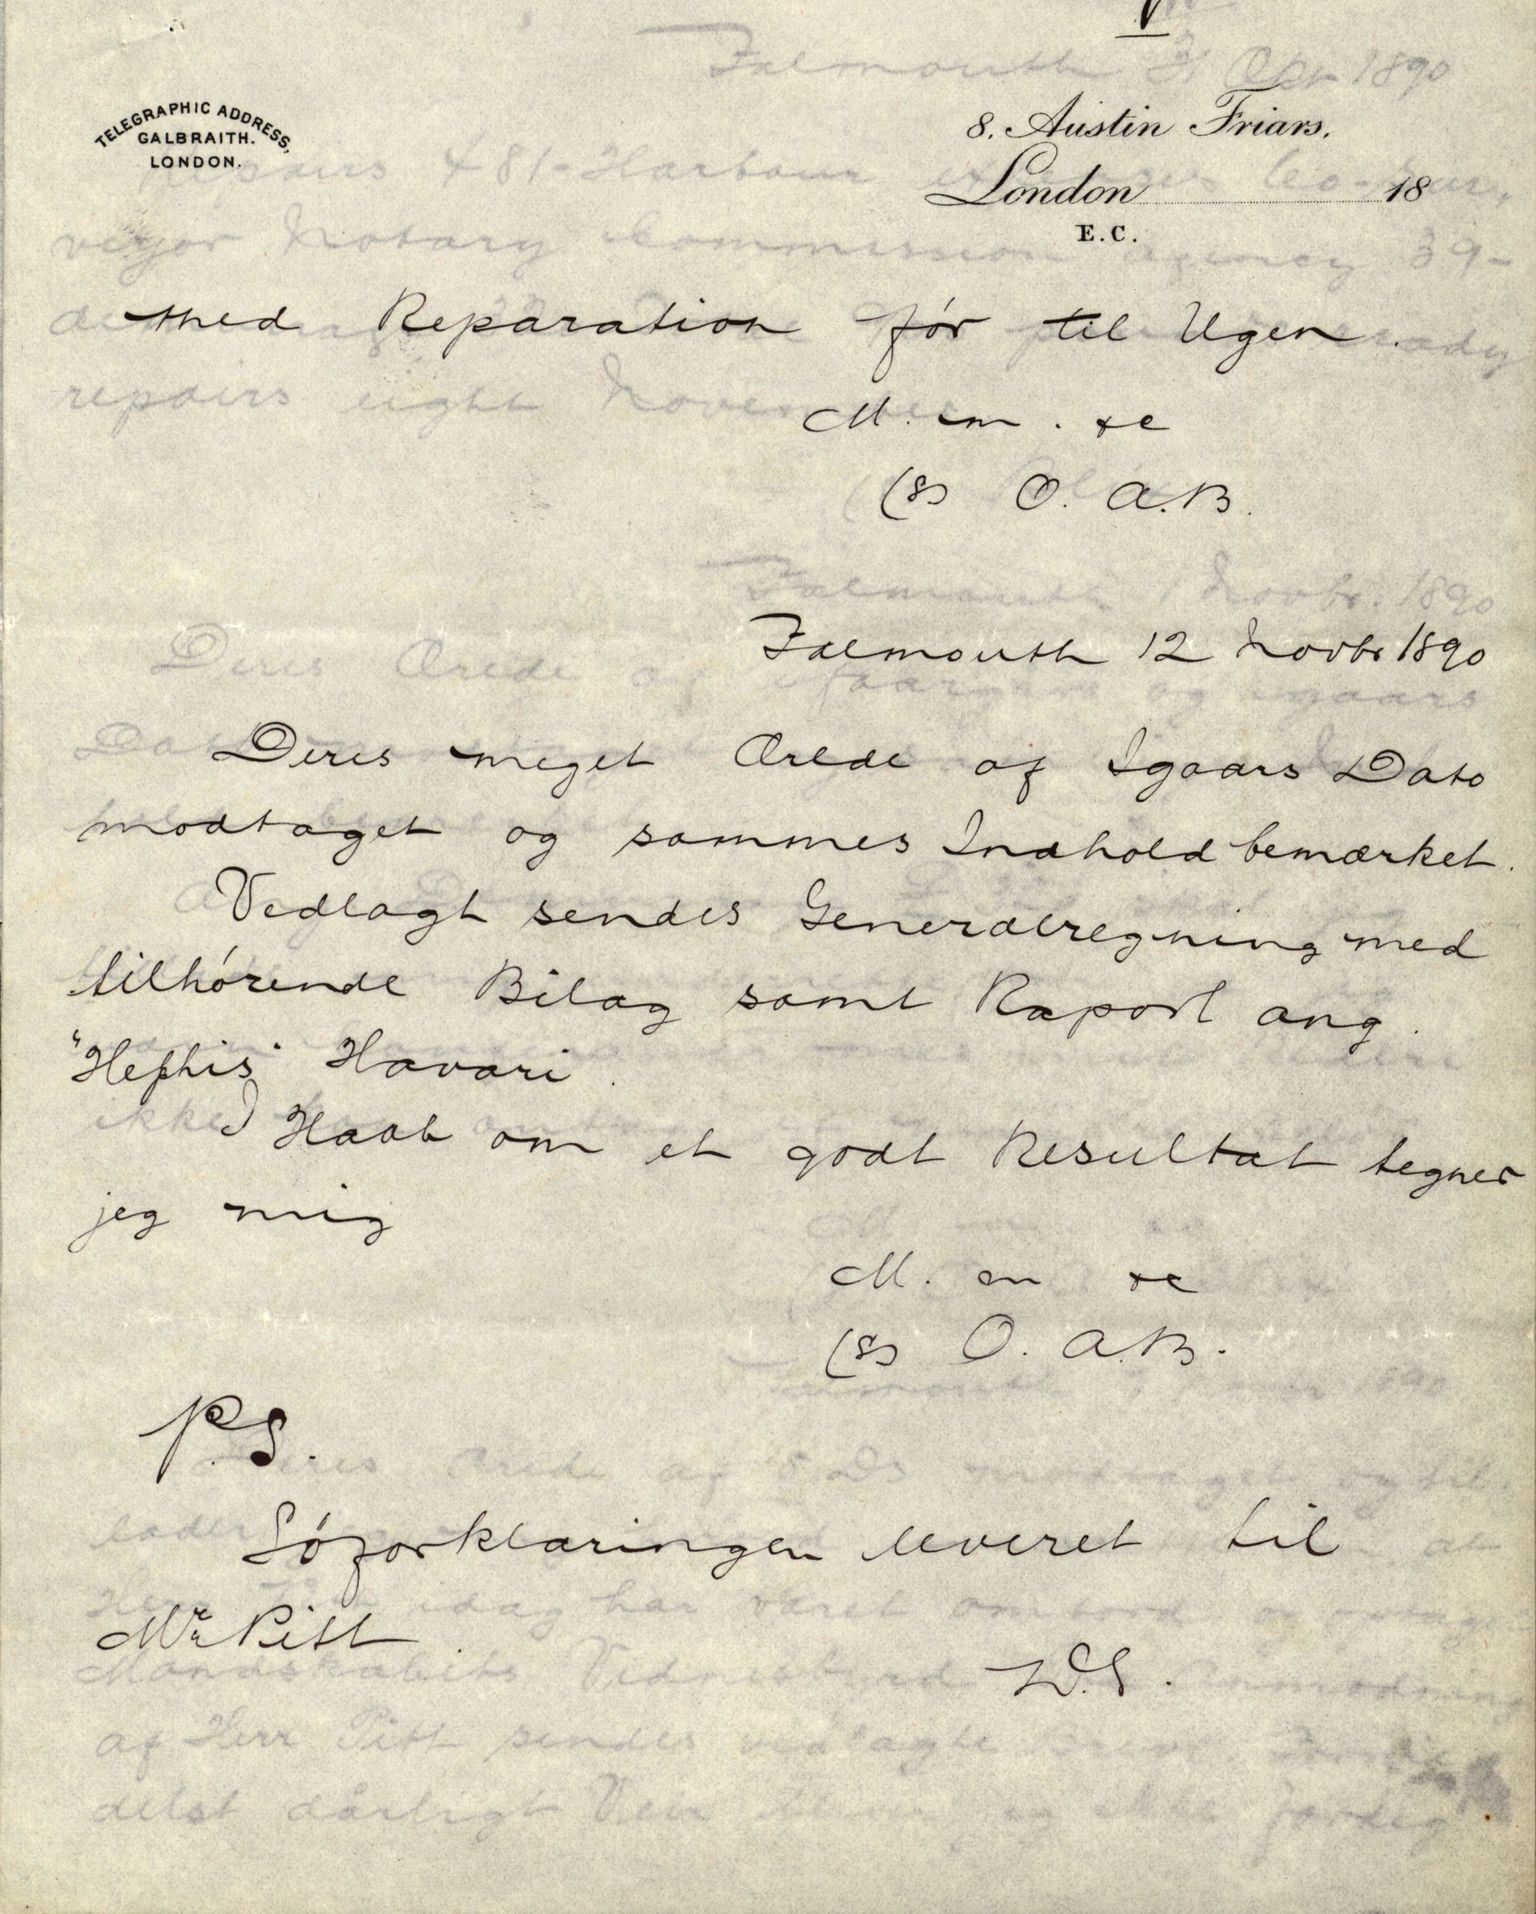 TELEGRAPHIC ADDRESS,
GALBRAITH.
LONDON.
8, Austin Friars,
London 18
E.C.
med Reparation før til Ugen.
M. m. &c
(s) O. A.B.
Falmouth 12 Novbr 1890
Deres meget Ærede af Igaars Dato
modtaget og sammes Indhold bemærket.
Vedlagt sendes Generalregning med
tilhørende Bilag samt Raport ang.
"Hephis" Havari.
I Haab om et godt Resultat tegner
jeg mig
M. m &c
(s) O. A.B.
P.S.
Søforklaringen leveret til
Mr Pitt.
D.S.